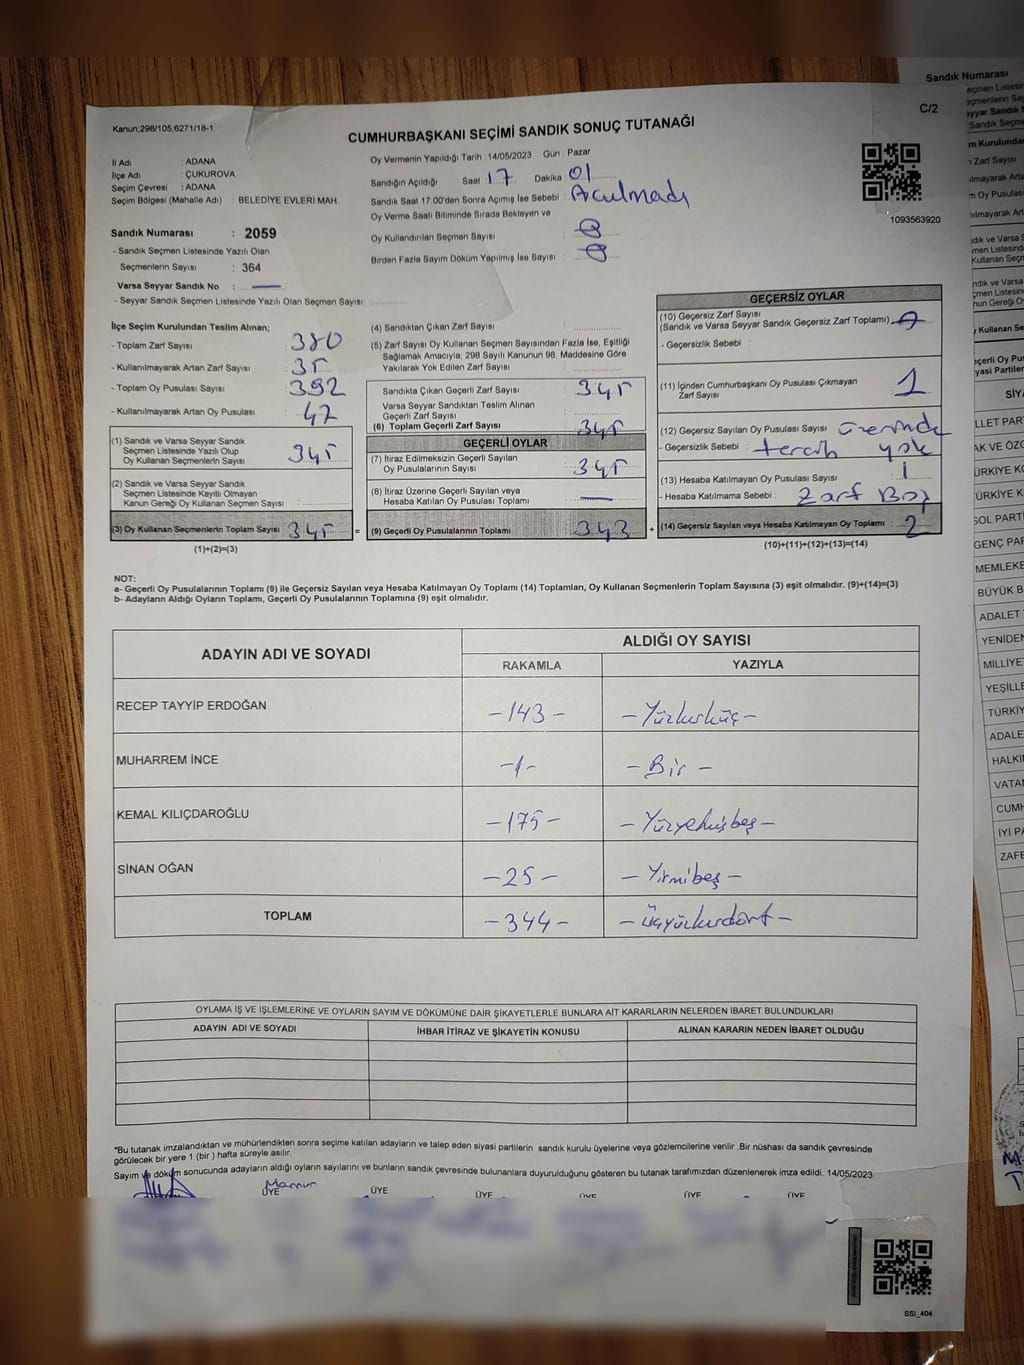 Kanun;298/105,6271/18-1
C/2
CUMHURBAŞKANI SEÇİMİ SANDIK SONUÇ TUTANAĞI
İl Adı : ADANA
İlçe Adı : ÇUKUROVA
Seçim Çevresi : ADANA
Seçim Bölgesi (Mahalle Adı) : BELEDİYE EVLERİ MAH.
Oy Vermenin Yapıldığı Tarih : 14/05/2023 Gün : Pazar
Sandığın Açıldığı Saat : 17 Dakika : 01
Sandık Saat 17.00'den Sonra Açılmış İse Sebebi : Açılmadı
Oy Verme Saati Bitiminde Sırada Bekleyen ve
Oy Kullandırılan Seçmen Sayısı : 0
Birden Fazla Sayım Döküm Yapılmış İse Sayısı : 0
1093563920
Sandık Numarası : 2059
- Sandık Seçmen Listesinde Yazılı Olan
Seçmenlerin Sayısı : 364
Varsa Seyyar Sandık No : —
- Seyyar Sandık Listesinde Yazılı Olan Seçmen Sayısı:
İlçe Seçim Kurulundan Teslim Alınan;
- Toplam Zarf Sayısı : 380
- Kullanılmayarak Artan Zarf Sayısı : 35
- Toplam Oy Pusulası Sayısı : 392
- Kullanılmayarak Artan Oy Pusulası : 47
(1) Sandık ve Varsa Seyyar Sandık
Seçmen Listesinde Yazılı Olup
Oy Kullanan Seçmenlerin Sayısı : 345
(2) Sandık ve Varsa Seyyar Sandık
Seçmen Listesinde Kayıtlı Olmayan
Kanun Gereği Oy Kullanan Seçmen Sayısı :
(3) Oy Kullanan Seçmenlerin Toplam Sayısı : 345 =
(1)+(2)=(3)
(4) Sandıktan Çıkan Zarf Sayısı :
(5) Zarf Sayısı Oy Kullanan Seçmen Sayısından Fazla İse, Eşitliği
Sağlamak Amacıyla, 298 Sayılı Kanunun 98. Maddesine Göre
Yakılarak Yok Edilen Zarf Sayısı :
Sandıkta Çıkan Geçerli Zarf Sayısı : 345
Varsa Seyyar Sandıktan Teslim Alınan
Geçerli Zarf Sayısı :
(6) Toplam Geçerli Zarf Sayısı : 345
GEÇERLİ OYLAR
(7) İtiraz Edilmeksizin Geçerli Sayılan
Oy Pusulalarının Sayısı : 345
(8) İtiraz Üzerine Geçerli Sayılan veya
Hesaba Katılan Oy Pusulası Toplamı : —
(9) Geçerli Oy Pusulalarının Toplamı : 343 +
GEÇERSİZ OYLAR
(10) Geçersiz Zarf Sayısı
(Sandık ve Varsa Seyyar Sandık Geçersiz Zarf Toplamı) : 0
- Geçersizlik Sebebi :
(11) İçinden Cumhurbaşkanı Oy Pusulası Çıkmayan
Zarf Sayısı : 1
(12) Geçersiz Sayılan Oy Pusulası Sayısı : üzerinde
- Geçersizlik Sebebi : tercih yok
(13) Hesaba Katılmayan Oy Pusulası Sayısı : 1
- Hesaba Katılmama Sebebi : Zarf Boş
(14) Geçersiz Sayılan veya Hesaba Katılmayan Oy Toplamı : 2
(10)+(11)+(12)+(13)=(14)
NOT:
a- Geçerli Oy Pusulalarının Toplamı (9) ile Geçersiz Sayılan veya Hesaba Katılmayan Oy Toplamı (14) Toplamları, Oy Kullanan Seçmenlerin Toplam Sayısına (3) eşit olmalıdır. (9)+(14)=(3)
b- Adayların Aldığı Oyların Toplamı, Geçerli Oy Pusulalarının Toplamına (9) eşit olmalıdır.
ADAYIN ADI VE SOYADI
ALDIĞI OY SAYISI
RAKAMLA YAZIYLA
RECEP TAYYİP ERDOĞAN -143- -Yüzkırküç-
MUHARREM İNCE -1- -Bir-
KEMAL KILIÇDAROĞLU -175- -Yüzyetmişbeş-
SİNAN OĞAN -25- -Yirmibeş-
TOPLAM -344- -Üçyüzkırkdört-
OYLAMA İŞ VE İŞLEMLERİNE VE OYLARIN SAYIM VE DÖKÜMÜNE DAİR ŞİKAYETLERLE BUNLARA AİT KARARLARIN NELERDEN İBARET BULUNDUKLARI
ADAYIN ADI VE SOYADI İHBAR İTİRAZ VE ŞİKAYETİN KONUSU ALINAN KARARIN NEDEN İBARET OLDUĞU
*Bu tutanak imzalandıktan ve mühürlendikten sonra seçime katılan adayların ve talep eden siyasi partilerin sandık kurulu üyelerine veya gözlemcilerine verilir. Bir nüshası da sandık çevresinde
görülecek bir yere 1 (bir) hafta süreyle asılır.
Sayım ve döküm sonucunda adayların aldığı oyların sayılarını ve bunların sandık çevresinde bulunanlara duyurulduğunu gösteren bu tutanak tarafımızdan düzenlenerek imza edildi. 14/05/2023
Memur
ÜYE ÜYE ÜYE ÜYE ÜYE ÜYE
SSI_404
Sandık Numarası